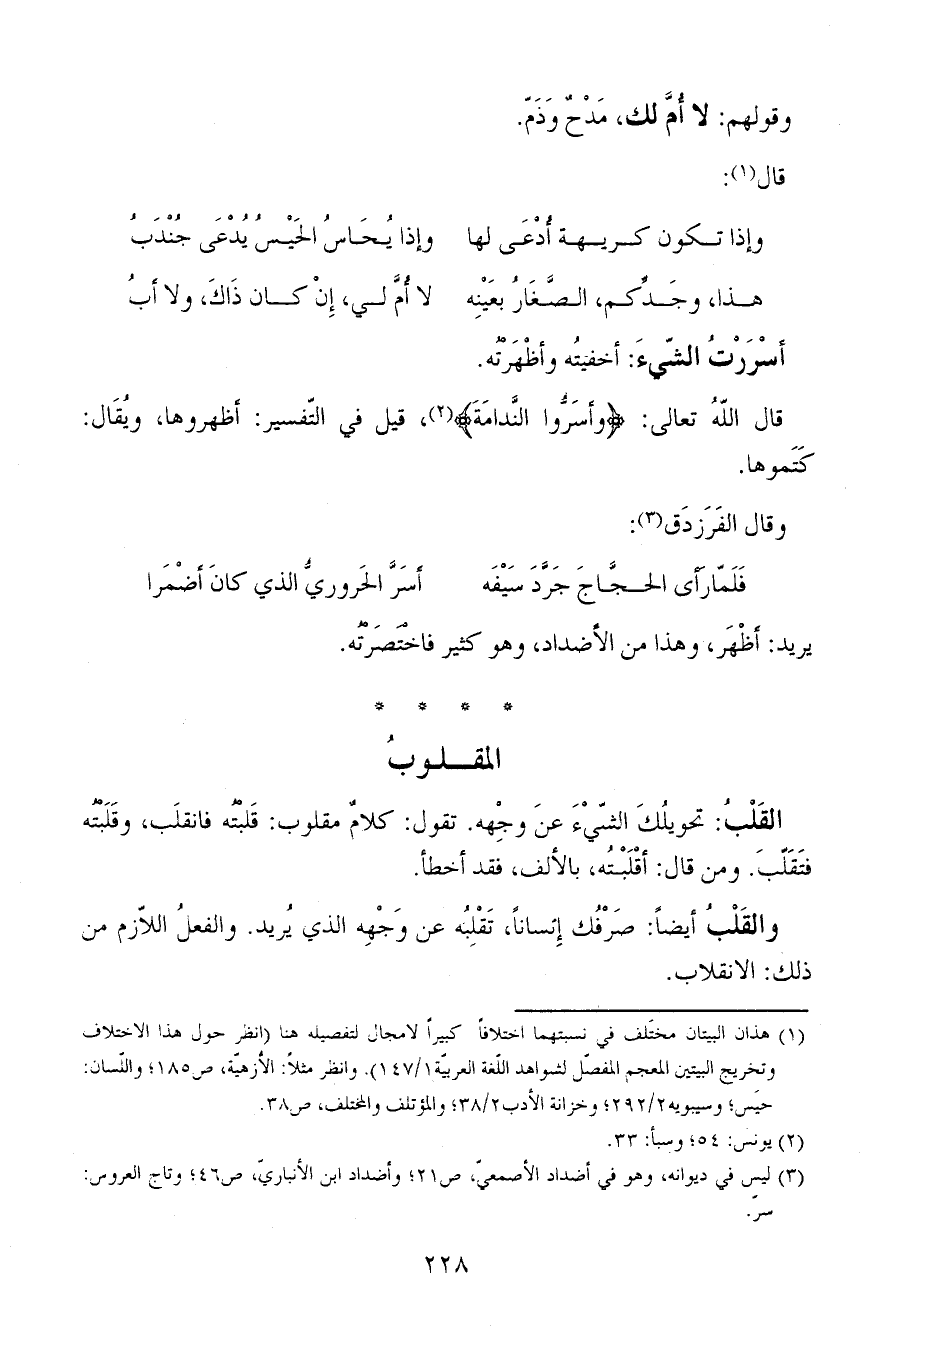 وقولهم: لا أُمَّ لك، مَدْحٌ وَذَمّ.
قال(١):
وإذا تـكون كـريـهـة أُدْعَـى لها    وإذا يُـحَـاسُ الحَيْـسُ يُدْعَى جُنْدَبُ
هـذا، وجَـدِّكـم، الـصَّغَارُ بعَيْنِه    لا أُمَّ لـي، إنْ كـان ذَاكَ، ولا أبُ
أسْرَرْتُ الشّيءَ: أخفيتُه وأظْهَرْتُه.
قال اللّهُ تعالى: ﴿وأسَرُّوا النَّدامَة﴾(٢)، قيل في التّفسير: أظهروها، ويُقَال:
كَتَموها.
وقال الفَرَزدَق(٣):
فَلَمّا رَأى الحـجَّـاجَ جَرَّدَ سَيْفَه    أسَرَّ الحَروريُّ الذي كانَ أضْمَرا
يريد: أظْهَر، وهذا من الأضداد، وهو كثير فاخْتَصَرْتُه.
* * * *
المقـلـوبُ
القَلْبُ: تحويلُكَ الشّيْءَ عنَ وجْهِه. تقول: كلامٌ مقلوب: قَلَبْتُه فانقلَب، وقَلَّبْتُه
فتَقَلَّبَ. ومن قال: أقْلَبْتُه، بالألف، فقد أخطأ.
والقَلْبُ أيضاً: صَرْفُك إنساناً، تَقْلِبُه عن وَجْهِه الذي يُريد. والفعلُ اللاّزم من
ذلك: الانقلاب.
(١) هذان البيتان مختَلف في نسبتهما اختلافاً كبيراً لامجال لتفصيله هنا (انظر حول هذا الاختلاف
وتخريج البيتين المعجم المفصّل لشواهد اللّغة العربيّة١/١٤٧). وانظر مثلاً: الأزهيّة، ص١٨٥؛ واللّسان:
حيَس؛ وسيبويه٢/٢٩٢؛ وخزانة الأدب٢/٣٨؛ والمؤتلف والمختلف، ص٣٨.
(٢) يونس: ٥٤؛ وسبأ: ٣٣.
(٣) ليس في ديوانه، وهو في أضداد الأصمعيّ، ص٢١؛ وأضداد ابن الأنباريّ، ص٤٦؛ وتاج العروس:
سرّ.
٢٢٨